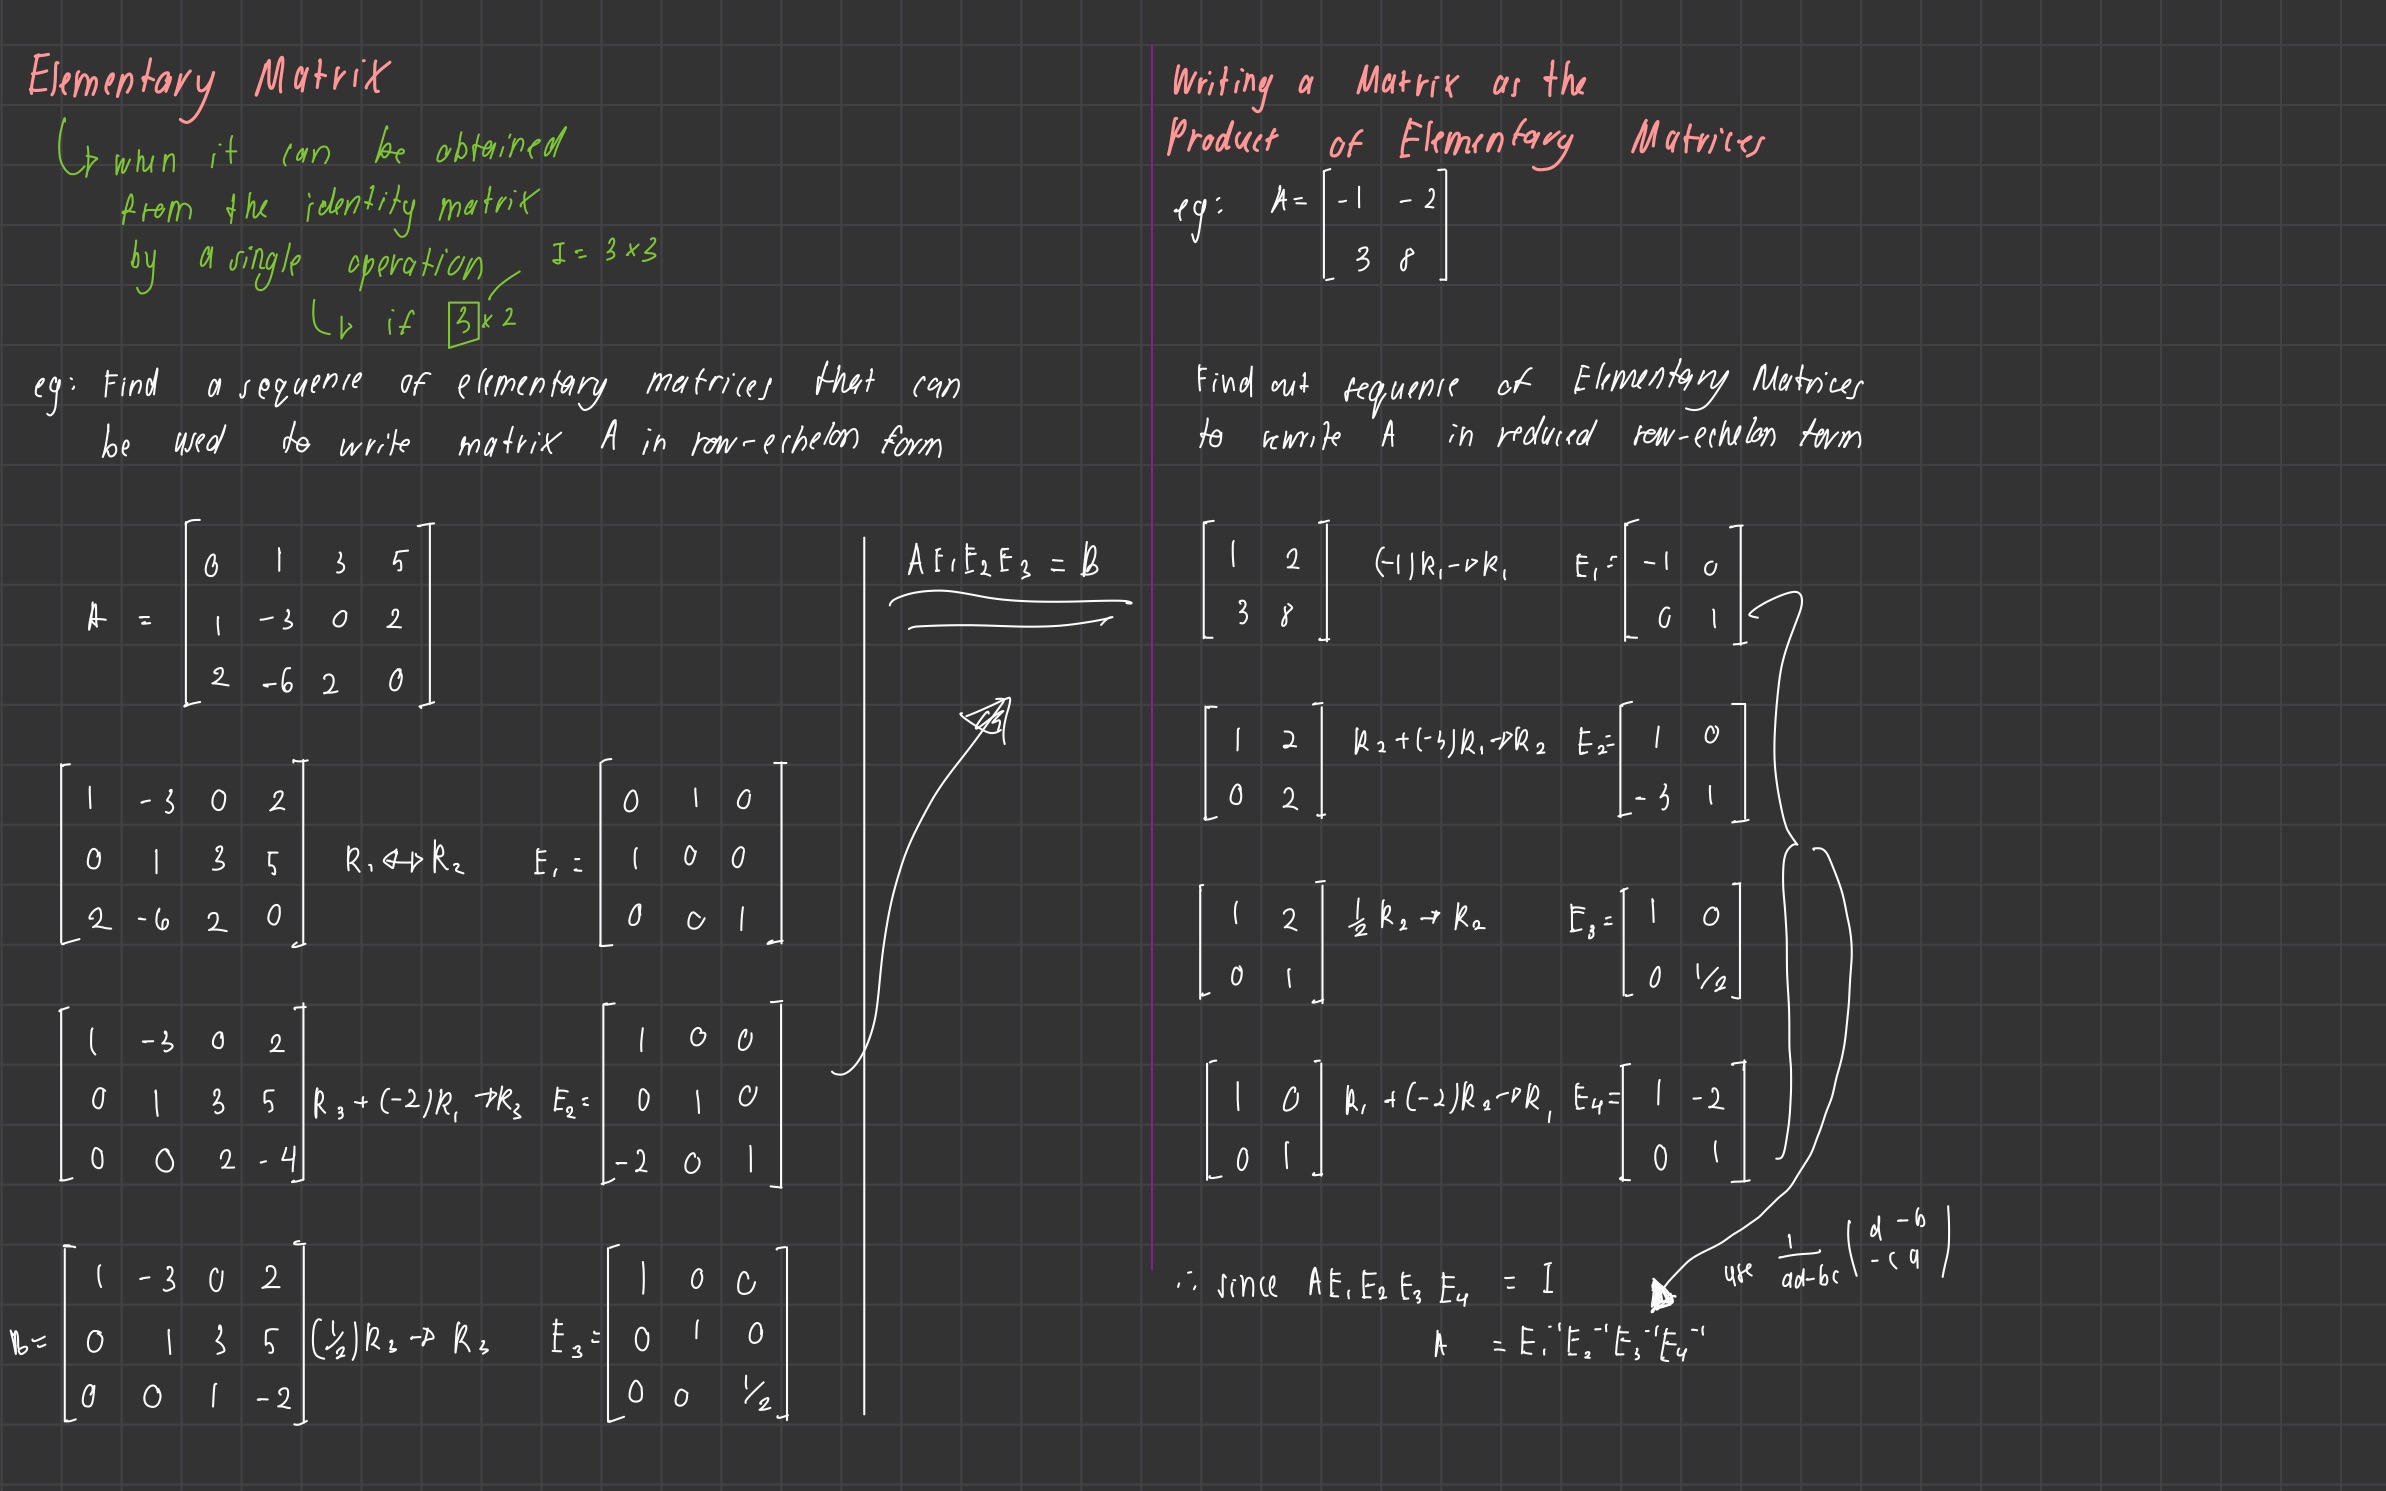 Elementary Matrix
↳ when it can be obtained
from the identity matrix
by a single operation
I = 3 × 3
↳ if 3 × 2
eg: Find a sequence of elementary matrices that can
be used to write matrix A in row-echelon form
A = [ 0 1 3 5
1 -3 0 2
2 -6 2 0 ]
[ 1 -3 0 2
0 1 3 5
2 -6 2 0 ] R₁ ↔ R₂ E₁ = [ 0 1 0
1 0 0
0 0 1 ]
[ 1 -3 0 2
0 1 3 5
0 0 2 -4 ] R₃ + (-2)R₁ → R₃ E₂ = [ 1 0 0
0 1 0
-2 0 1 ]
B = [ 1 -3 0 2
0 1 3 5
0 0 1 -2 ] (1/2)R₃ → R₃ E₃ = [ 1 0 0
0 1 0
0 0 1/2 ]
AE₁E₂E₃ = B
Writing a Matrix as the
Product of Elementary Matrices
eg: A = [ -1 -2
3 8 ]
Find out sequence of Elementary Matrices
to rewrite A in reduced row-echelon form
[ 1 2
3 8 ] (-1)R₁ → R₁ E₁ = [ -1 0
0 1 ]
[ 1 2
0 2 ] R₂ + (-3)R₁ → R₂ E₂ = [ 1 0
-3 1 ]
[ 1 2
0 1 ] 1/2 R₂ → R₂ E₃ = [ 1 0
0 1/2 ]
[ 1 0
0 1 ] R₁ + (-2)R₂ → R₁ E₄ = [ 1 -2
0 1 ]
use 1/(ad-bc) ( d -b
-c a )
∴ since AE₁E₂E₃E₄ = I
A = E₁⁻¹E₂⁻¹E₃⁻¹E₄⁻¹